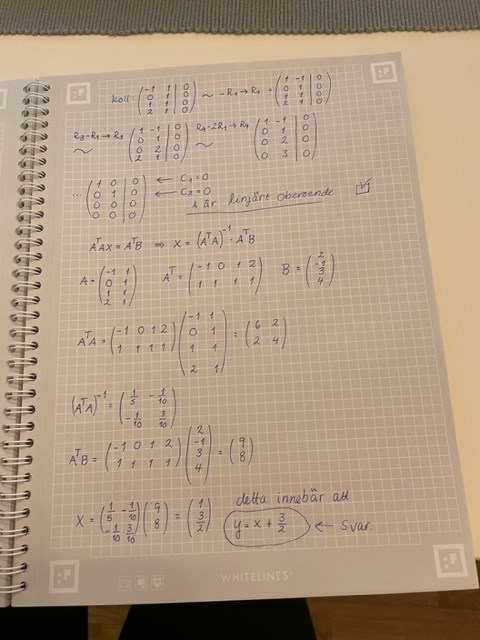 koll (-1 1 | 0; 0 1 | 0; 1 1 | 0; 2 1 | 0) ~ -R₁→R₁ = (1 -1 | 0; 0 1 | 0; 1 1 | 0; 2 1 | 0)
R₃-R₁→R₃ ~ (1 -1 | 0; 0 1 | 0; 0 2 | 0; 2 1 | 0) R₄-2R₁→R₄ ~ (1 -1 | 0; 0 1 | 0; 0 2 | 0; 0 3 | 0)
... (1 0 | 0; 0 1 | 0; 0 0 | 0; 0 0 | 0) ← C₁=0 ← C₂=0
är linjärt oberoende
AᵀAX = AᵀB ⇒ X = (AᵀA)⁻¹ · AᵀB
A = (-1 1; 0 1; 1 1; 2 1) Aᵀ = (-1 0 1 2; 1 1 1 1) B = (2; -1; 3; 4)
AᵀA = (-1 0 1 2; 1 1 1 1) (-1 1; 0 1; 1 1; 2 1) = (6 2; 2 4)
(AᵀA)⁻¹ = (1/5 -1/10; -1/10 3/10)
AᵀB = (-1 0 1 2; 1 1 1 1) (2; -1; 3; 4) = (9; 8)
X = (1/5 -1/10; -1/10 3/10) (9; 8) = (1; 3/2)
detta innebär att
y = x + 3/2 ← Svar.
WHITELINES®